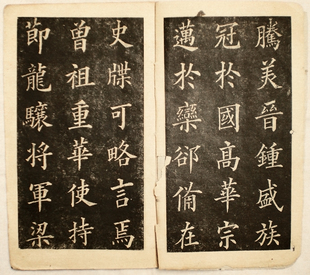 騰美晉鍾盛族
冠於國髙華宗
邁於欒郤俻在
史牒可略言焉
曾祖重華使持
莭龍驤將軍梁